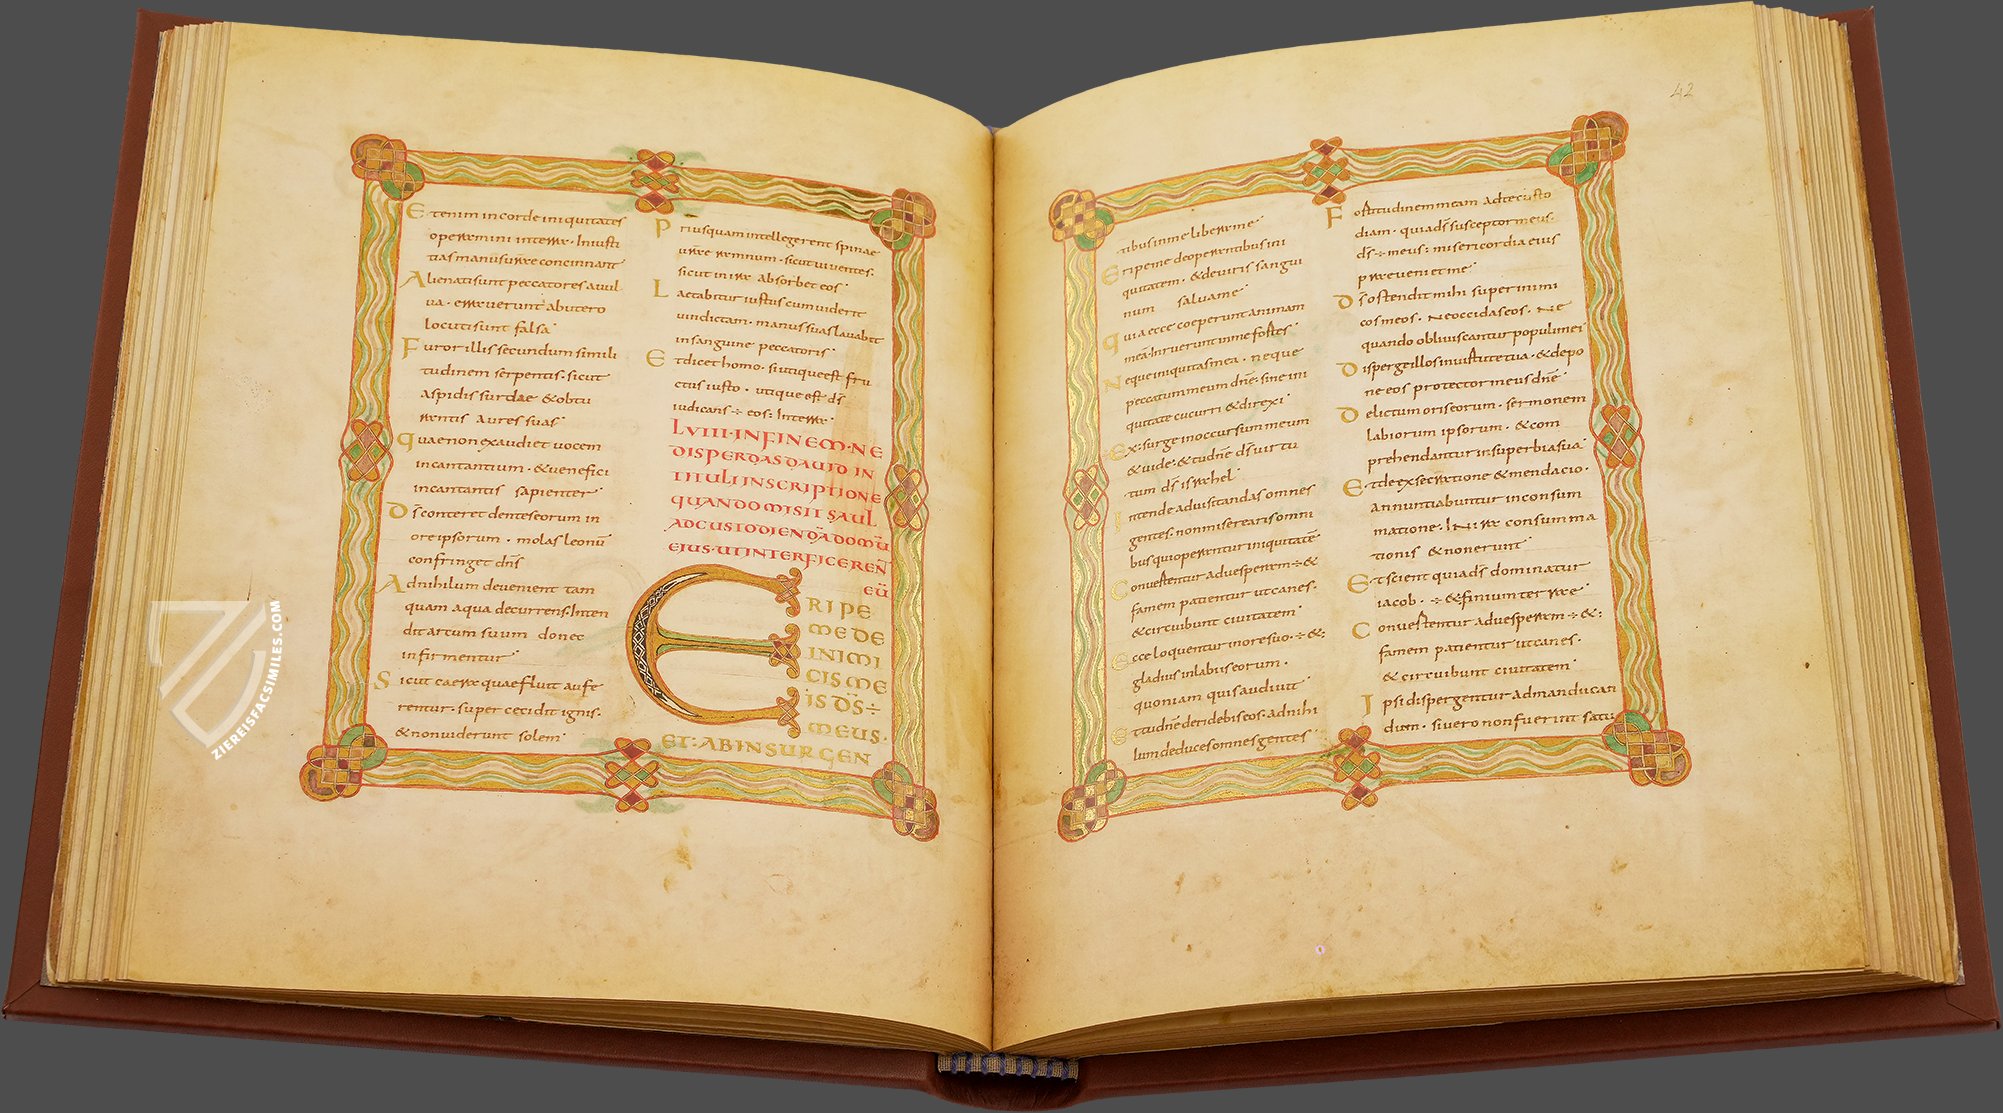 Etenim incorde iniquitates
operamini interra· Iniusti
tias manusurae concinnant
Alienatisunt peccatores auul
ua· erraverunt abutero
locutisunt falsa
Furor illis secundum simili
tudinem serpentis· sicut
aspidis surdae &obtu
rantis aures suas
quaenon exaudiet uocem
incantantium· &uenefici
incantantis sapienter
Ds conteret dentes eorum in
ore ipsorum· molas leonū
confringet dn̄s
Adnihilum devenient tam
quam aqua decurrens· Inten
dit arcum suum donec
infirmentur
Sicut caera quaefluit aufe
rentur· super cecidit ignis·
&nonviderunt solem
Priusquam intellegerent spinae
urae ramnum· sicut uiventes·
sicut in ira absorbet eos
Laetabitur iustus cum viderit
vindictam· manus suas lauabit
insanguine peccatoris
Etdicet homo· si utique est fru
ctus iusto· utique est ds̄
iudicans ÷ eos: Interra·
LVIII·INFINEM·NE
DISPERDAS DAVID IN
TITULI INSCRIPTIONE
QUANDO MISIT SAUL
ADCUSTODIENDĀ DOMŪ
EIUS· UT INTERFICEREN̄
EŪ
ERIPE
MEDE
INIMI
CISME
IS DS̄÷
MEUS·
ET·ABINSURGEN
42
tibus inme libera me
Eripeme deoperantibus ini
quitatem· &deviris sangui
num salvame
quia ecce coeperunt animam
meā· Inruerunt inme fortes
Neque iniquitas mea· neque
peccatum meum dn̄e· sine ini
quitate cucurri &direxi
Exsurge inoccursum meum
&vide· &tudn̄e ds̄ virtu
tum ds̄ israhel
Intende advisitandas omnes
gentes· non miserearis omni
bus qui operantur iniquitatē
Convertentur aduesperam ÷ &
famem patientur ut canes·
&circuibunt civitatem
Ecce loquentur in ore suo· ÷ &:
gladius inlabiis eorum·
quoniam quis audivit
Ettudn̄e deridebis eos· adnihi
lum deduces omnes gentes
Fortitudinem meam adte custo
diam· quia ds̄ susceptor meus·
ds̄ ÷ meus: misericordia eius
praeveniet me
Ds̄ ostendit mihi super inimi
cos meos· Ne occidas eos· Ne
quando obliviscantur populi mei
Disperge illos in virtute tua· &depo
ne eos protector meus dn̄e
Delictum oris eorum· sermonem
labiorum ipsorum· &com
prehendantur in superbia sua
Et de exsecratione &mendacio·
annuntiabuntur in consum
matione· In ira consumma
tionis &non erunt
Et scient quia ds̄ dominatur
iacob· ÷ &finium terrae
Convertentur aduesperam ÷ &:
famem patientur ut canes·
&circuibunt civitatem
Ipsi dispergentur admanducan
dum· si vero non fuerint satu
ZIEREISFACSIMILES.COM